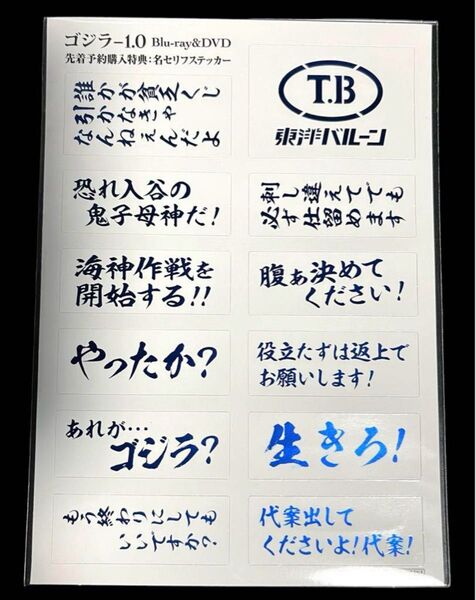 ゴジラ-1.0 Blu-ray&DVD
先着予約購入特典:名セリフステッカー
誰かが貧乏くじ
引かなきゃ
なんねぇんだよ
T.B
東洋バルーン
恐れ入谷の
鬼子母神だ!
刺し違えてでも
必ず仕留めます
海神作戦を
開始する!!
腹ぁ決めて
ください!
やったか?
役立たずは返上で
お願いします!
あれが…
ゴジラ?
生きろ!
もう終わりにしても
いいですか?
代案出して
くださいよ!代案!